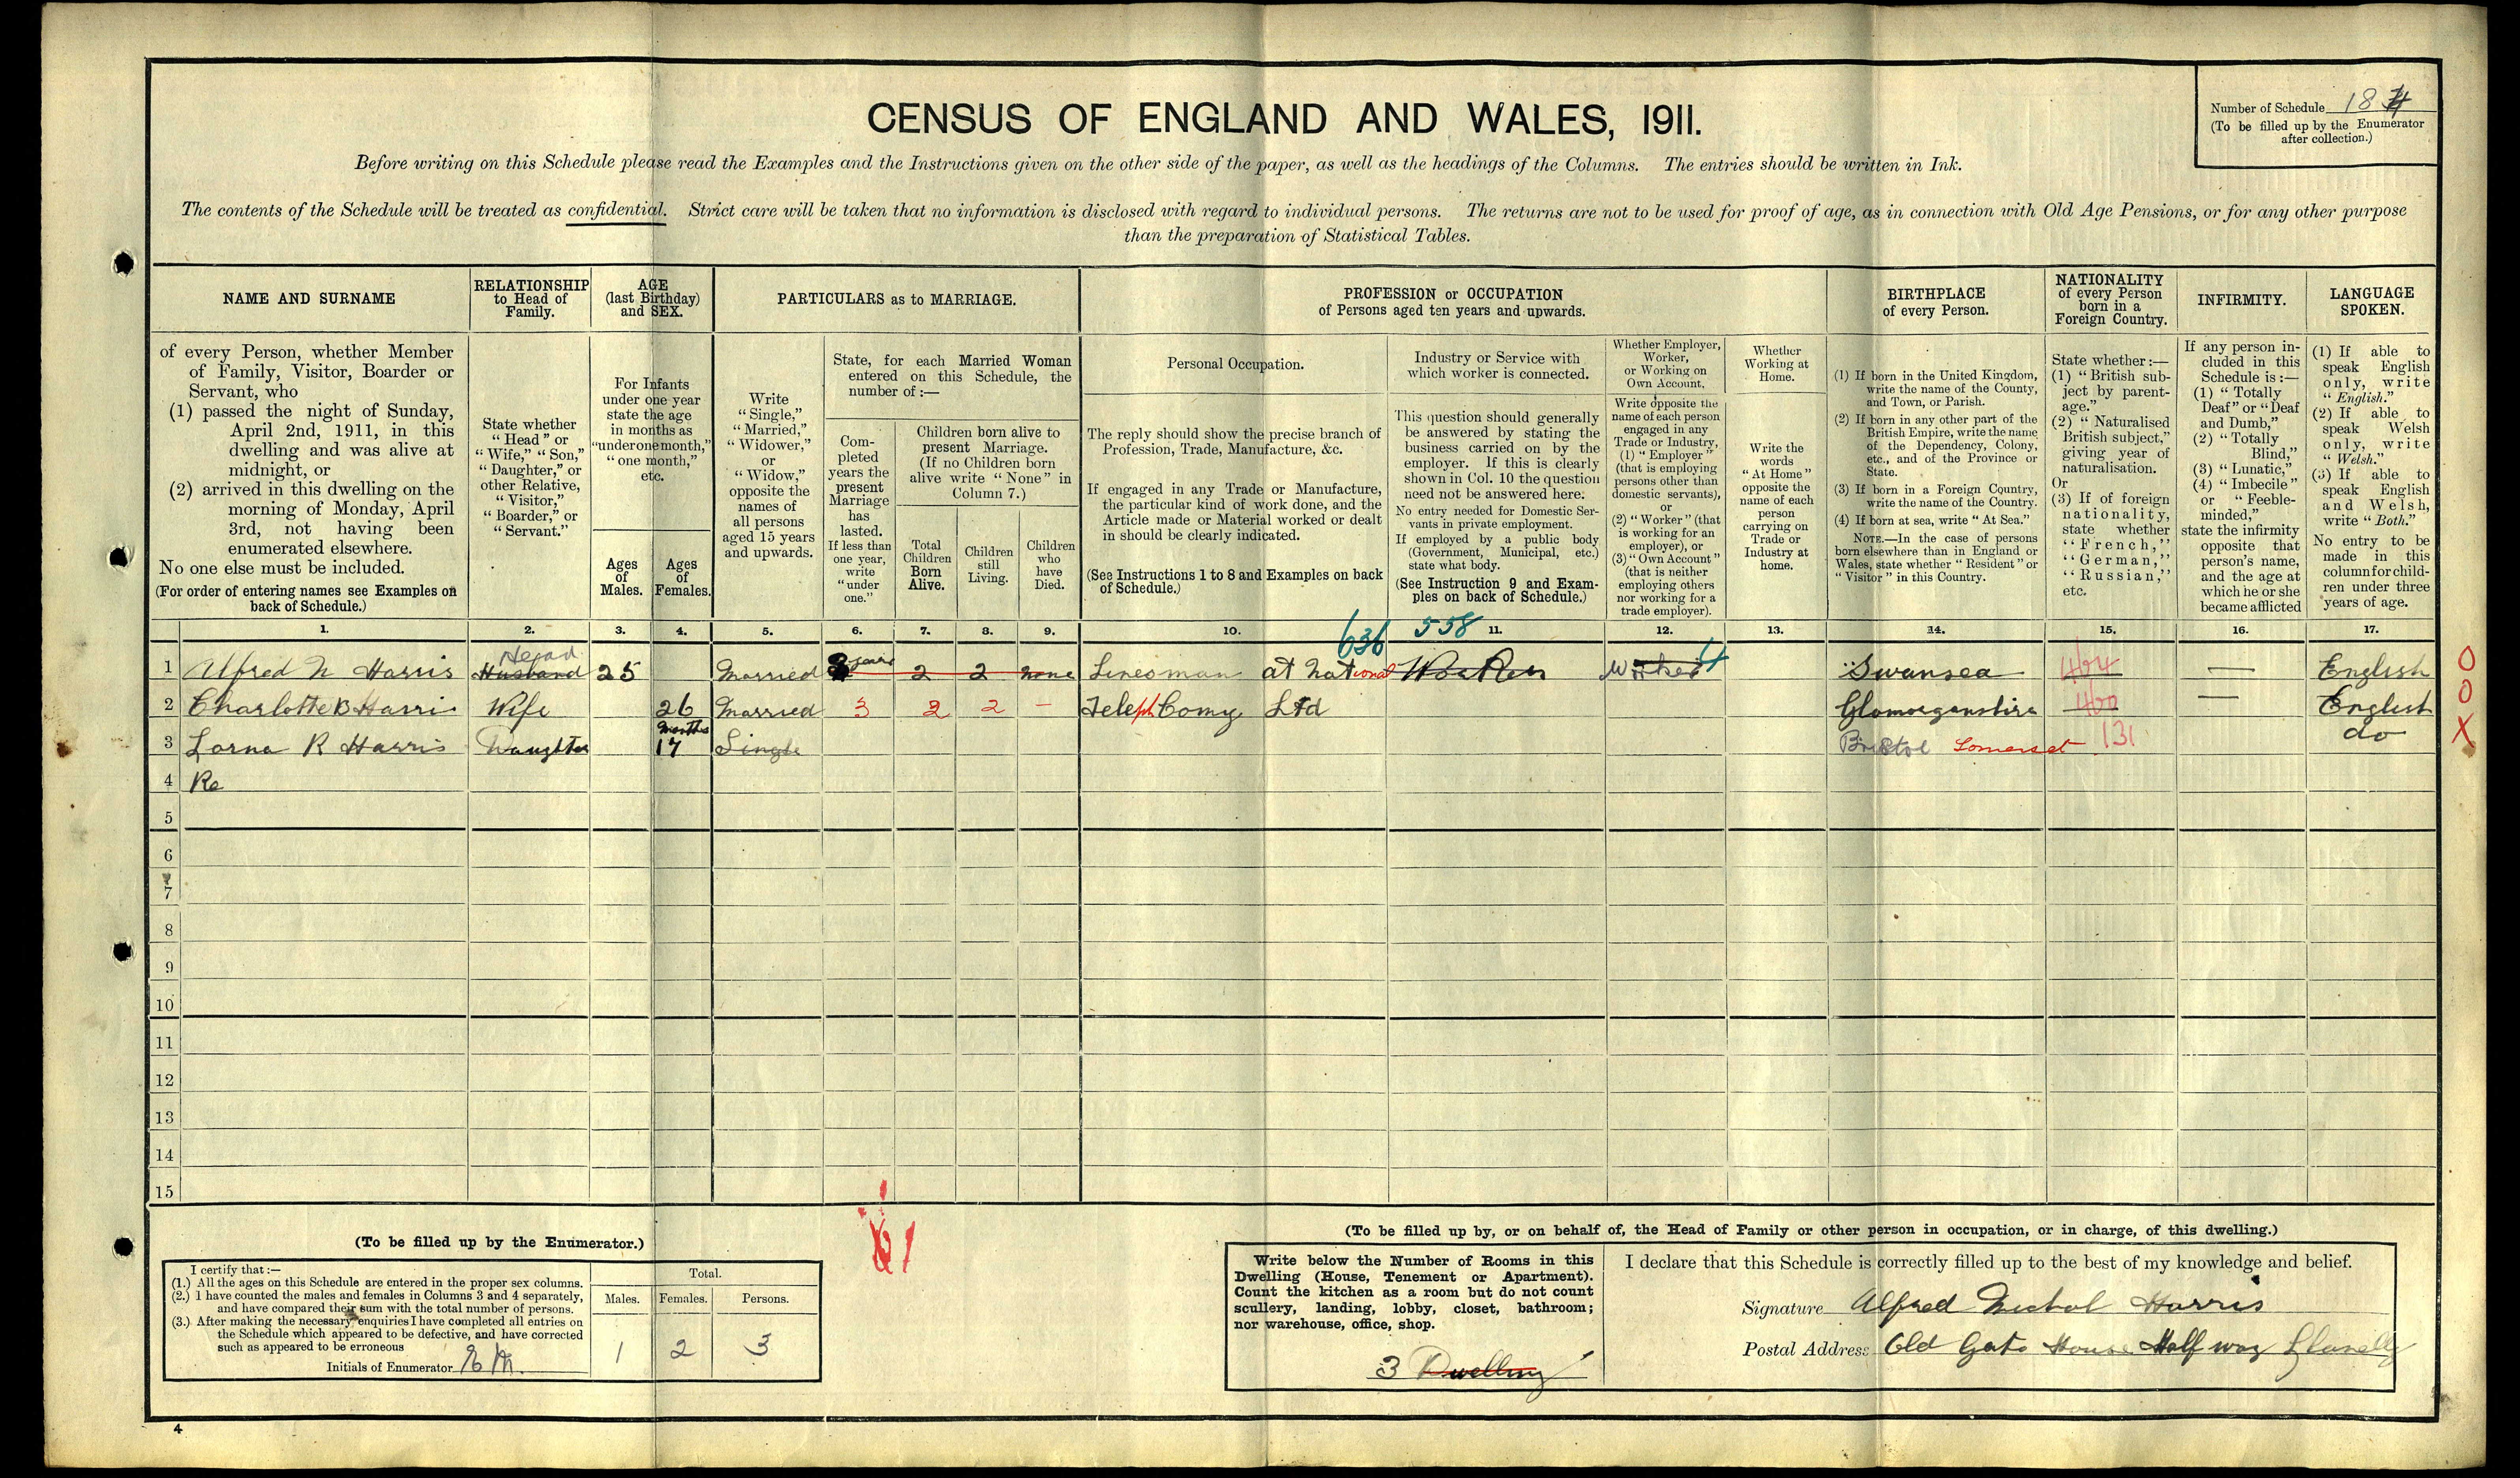 CENSUS OF ENGLAND AND WALES, 1911.
Number of Schedule 18
(To be filled up by the Enumerator
after collection.)
Before writing on this Schedule please read the Examples and the Instructions given on the other side of the paper, as well as the headings of the Columns. The entries should be written in Ink.
The contents of the Schedule will be treated as confidential. Strict care will be taken that no information is disclosed with regard to individual persons. The returns are not to be used for proof of age, as in connection with Old Age Pensions, or for any other purpose
than the preparation of Statistical Tables.
NAME AND SURNAME
of every Person, whether Member
of Family, Visitor, Boarder or
Servant, who
(1) passed the night of Sunday,
April 2nd, 1911, in this
dwelling and was alive at
midnight, or
(2) arrived in this dwelling on the
morning of Monday, April
3rd, not having been
enumerated elsewhere.
No one else must be included.
(For order of entering names see Examples on
back of Schedule.)
RELATIONSHIP
to Head of
Family.
State whether
"Head" or
"Wife," "Son,"
"Daughter," or
other Relative,
"Visitor,"
"Boarder," or
"Servant."
AGE
(last Birthday)
and SEX.
For Infants
under one year
state the age
in months as
"under one month,"
"one month,"
etc.
Ages
of
Males.
Ages
of
Females.
PARTICULARS as to MARRIAGE.
Write
"Single,"
"Married,"
"Widower,"
or
"Widow,"
opposite the
names of
all persons
aged 15 years
and upwards.
State, for each Married Woman
entered on this Schedule, the
number of :—
Com-
pleted
years the
present
Marriage
has
lasted.
If less than
one year,
write
"under
one."
Children born alive to
present Marriage.
(If no Children born
alive write "None" in
Column 7.)
Total
Children
Born
Alive.
Children
still
Living.
Children
who
have
Died.
PROFESSION or OCCUPATION
of Persons aged ten years and upwards.
Personal Occupation.
The reply should show the precise branch of
Profession, Trade, Manufacture, &c.
If engaged in any Trade or Manufacture,
the particular kind of work done, and the
Article made or Material worked or dealt
in should be clearly indicated.
(See Instructions 1 to 8 and Examples on back
of Schedule.)
Industry or Service with
which worker is connected.
This question should generally
be answered by stating the
business carried on by the
employer. If this is clearly
shown in Col. 10 the question
need not be answered here.
No entry needed for Domestic Ser-
vants in private employment.
If employed by a public body
(Government, Municipal, etc.)
state what body.
(See Instruction 9 and Exam-
ples on back of Schedule.)
Whether Employer,
Worker,
or Working on
Own Account.
Write opposite the
name of each person
engaged in any
Trade or Industry,
(1) "Employer"
(that is employing
persons other than
domestic servants),
or
(2) "Worker" (that
is working for an
employer), or
(3) "Own Account"
(that is neither
employing others
nor working for a
trade employer).
Whether
Working at
Home.
Write the
words
"At Home"
opposite the
name of each
person
carrying on
Trade or
Industry at
home.
BIRTHPLACE
of every Person.
(1) If born in the United Kingdom,
write the name of the County,
and Town, or Parish.
(2) If born in any other part of the
British Empire, write the name
of the Dependency, Colony,
etc., and of the Province or
State.
(3) If born in a Foreign Country,
write the name of the Country.
(4) If born at sea, write "At Sea."
NOTE.—In the case of persons
born elsewhere than in England or
Wales, state whether "Resident" or
"Visitor" in this Country.
NATIONALITY
of every Person
born in a
Foreign Country.
State whether :—
(1) "British sub-
ject by parent-
age."
(2) "Naturalised
British subject,"
giving year of
naturalisation.
Or
(3) If of foreign
nationality,
state whether
"French,"
"German,"
"Russian,"
etc.
INFIRMITY.
If any person in-
cluded in this
Schedule is :—
(1) "Totally
Deaf" or "Deaf
and Dumb,"
(2) "Totally
Blind,"
(3) "Lunatic,"
(4) "Imbecile"
or "Feeble-
minded,"
state the infirmity
opposite that
person's name,
and the age at
which he or she
became afflicted
LANGUAGE
SPOKEN.
(1) If able to
speak English
only, write
"English."
(2) If able to
speak Welsh
only, write
"Welsh."
(3) If able to
speak English
and Welsh,
write "Both."
No entry to be
made in this
column for child-
ren under three
years of age.
1. 2. 3. 4. 5. 6. 7. 8. 9. 10. 11. 12. 13. 14. 15. 16. 17.
636 558
Head
1 Alfred N Harris Husband 25 Married years 2 2 none Linesman at National Worker Worker 4 Swansea 464 — English O
2 Charlotte B Harris Wife 26 Married 3 2 2 — Teleph Comy Ltd Glamorganshire 460 — English O
months
3 Lorna R Harris Daughter 17 Single Bristol Somerset 131 do X
4 Re
5
6
7
8
9
10
11
12
13
14
15
61
(To be filled up by the Enumerator.)
I certify that :—
(1.) All the ages on this Schedule are entered in the proper sex columns.
(2.) I have counted the males and females in Columns 3 and 4 separately,
and have compared their sum with the total number of persons.
(3.) After making the necessary enquiries I have completed all entries on
the Schedule which appeared to be defective, and have corrected
such as appeared to be erroneous
Initials of Enumerator
Total.
Males. Females. Persons.
1 2 3
(To be filled up by, or on behalf of, the Head of Family or other person in occupation, or in charge, of this dwelling.)
Write below the Number of Rooms in this
Dwelling (House, Tenement or Apartment).
Count the kitchen as a room but do not count
scullery, landing, lobby, closet, bathroom;
nor warehouse, office, shop.
3 Dwelling
I declare that this Schedule is correctly filled up to the best of my knowledge and belief.
Signature Alfred Nichol Harris
Postal Address Old Gate House Half way Llanelly
4